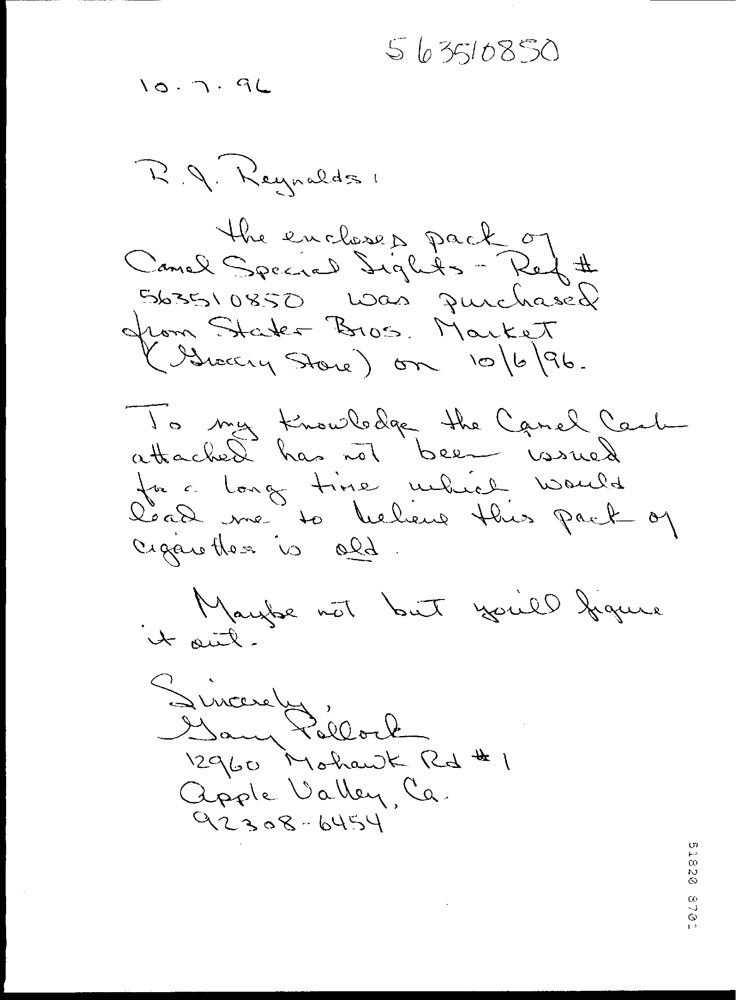 563510850
10.7.96
R.J. Reynolds:
The enclosed pack of
Camel Special Lights - Ref #
563510850 was purchased
from Stater Bros. Market
(Grocery Store) on 10/6/96.
To my knowledge the Camel Cash
attached has not been issued
for a long time which would
lead me to believe this pack of
cigarettes is old.
Maybe not but you'll figure
it out.
Sincerely,
Gary Pollock
12960 Mohawk Rd #1
Apple Valley, Ca.
92308-6454
51820 8701